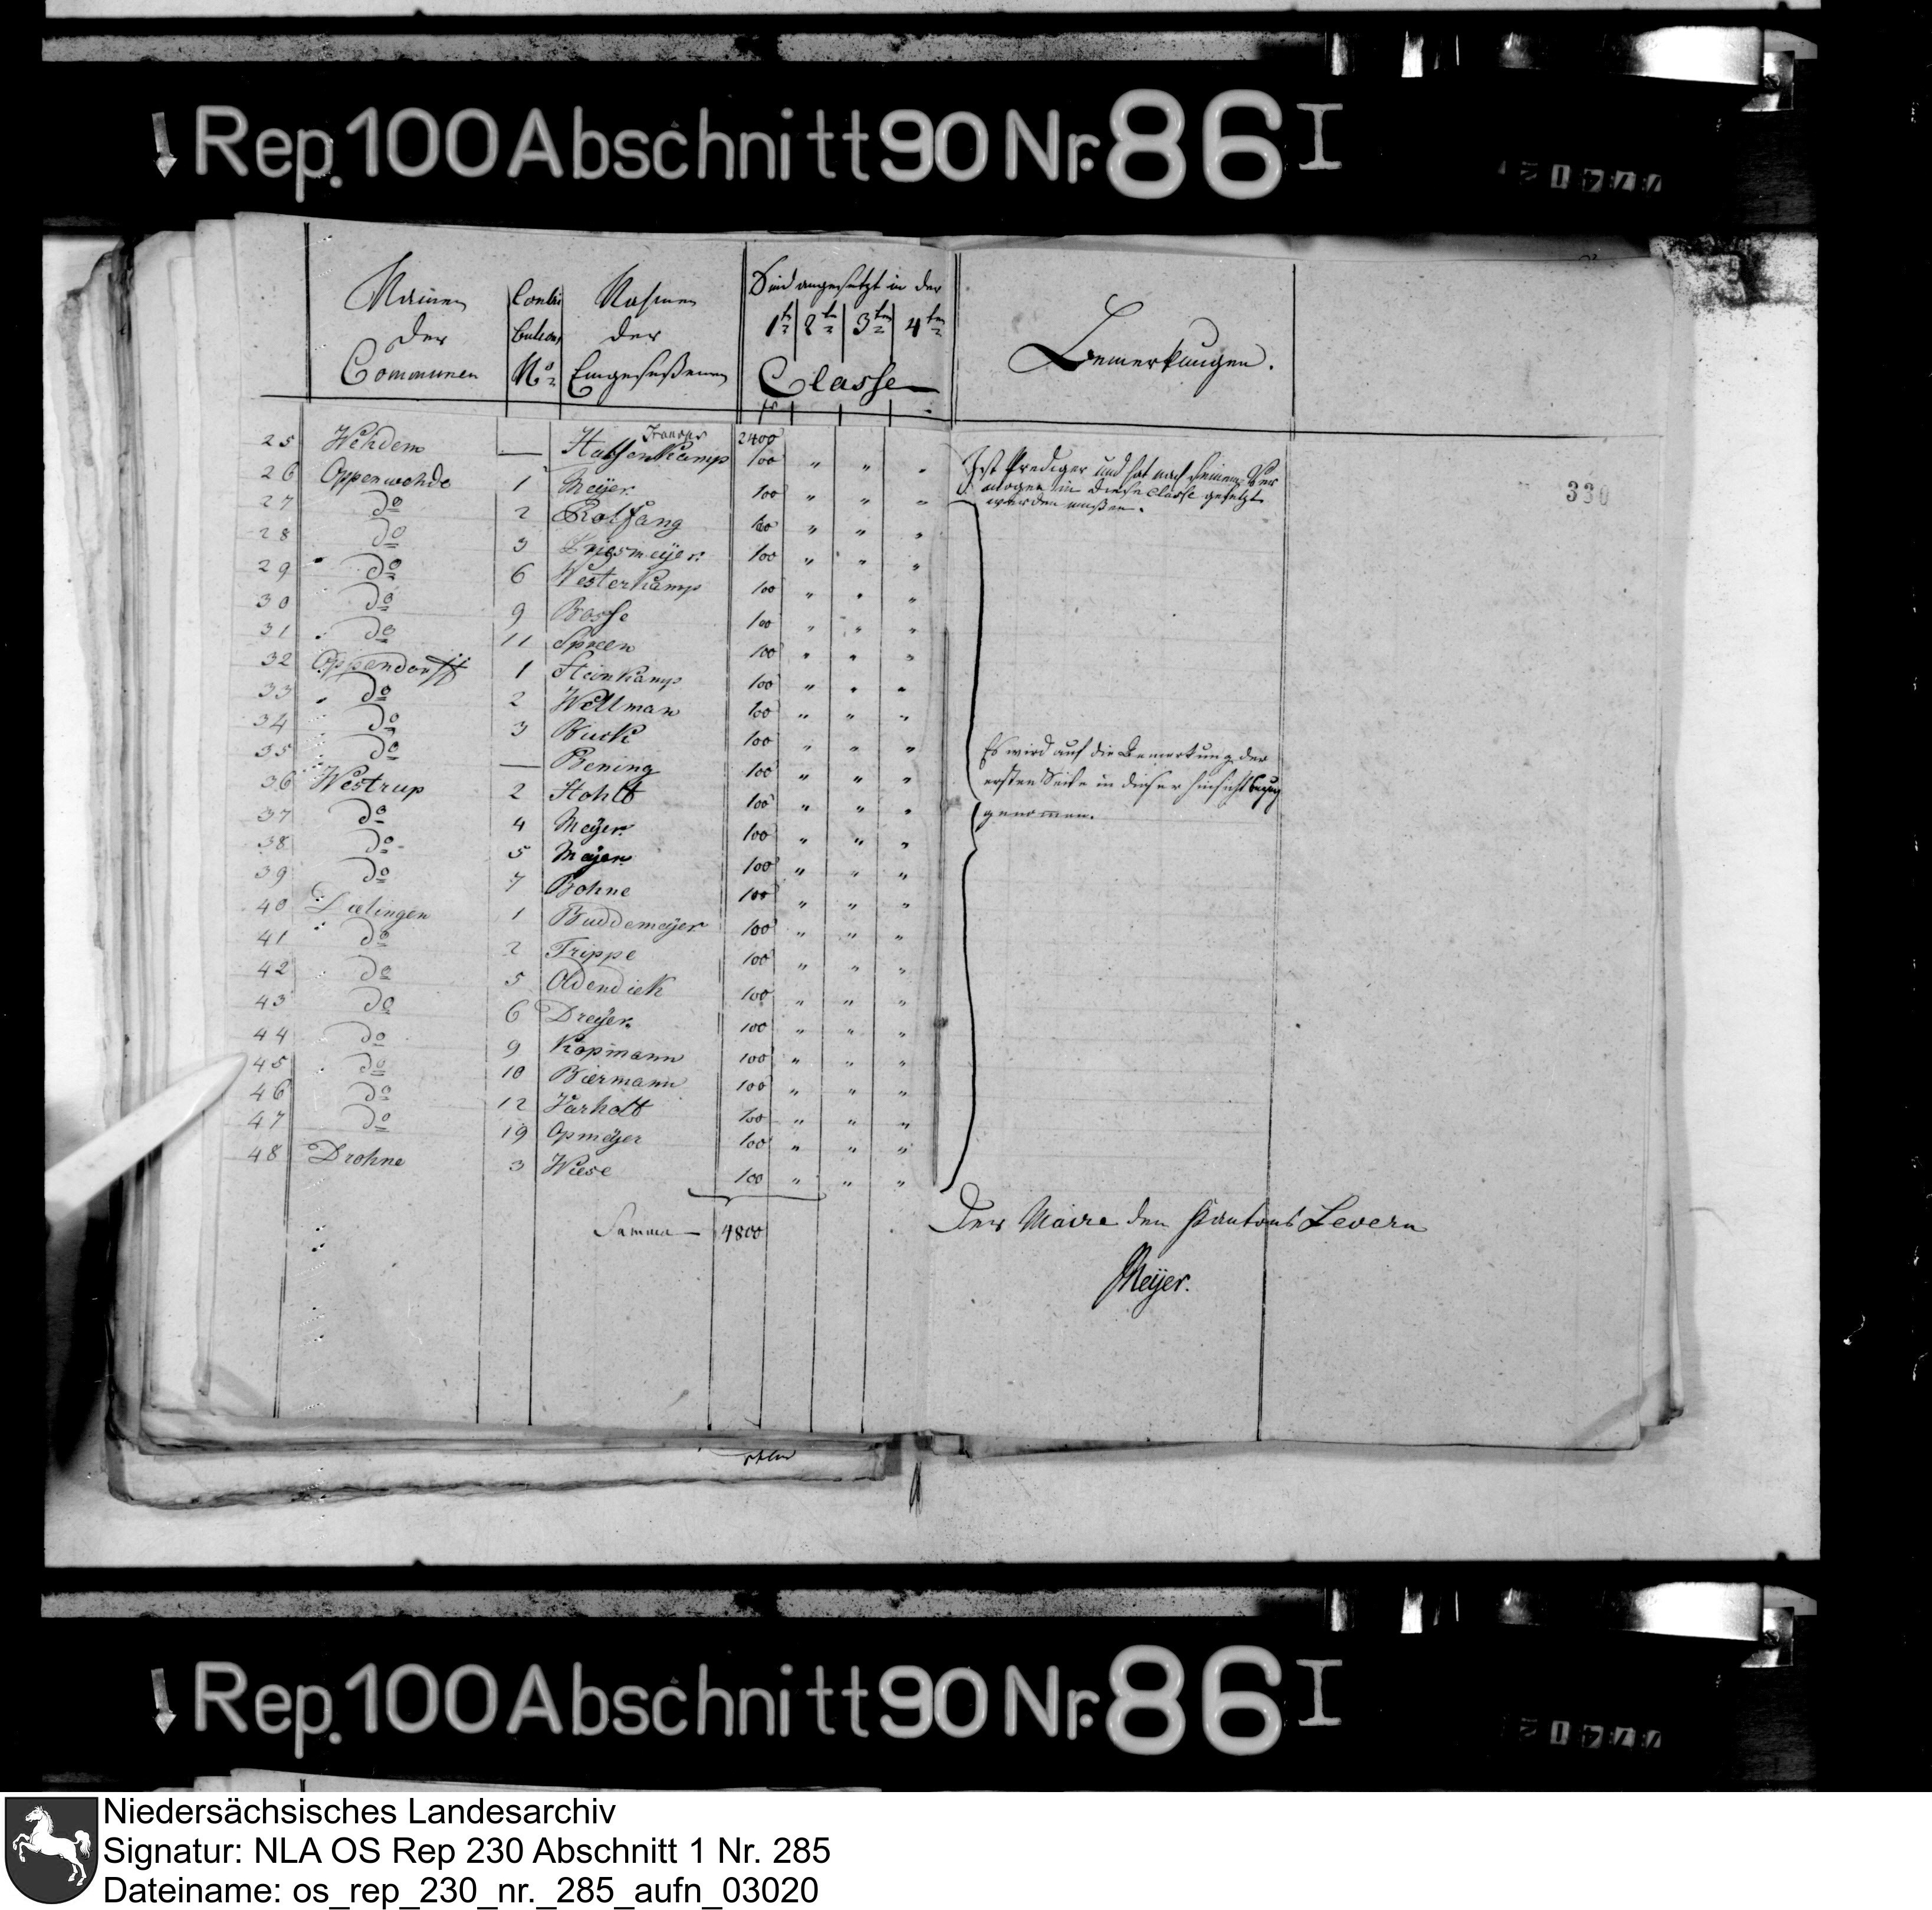 Rep. 100 Abschnitt 90 Nr. 86 I
Namen der Communen | Contributions No. | Nahmen der Eingeseßenen | Sind angesetzt in der 1te 2te 3ten 4ten Classe | Bemerkungen.
fr
Transp 2400
25 Wehdem — Halsenkamp 100 " " " Ist Prediger und hat nach seinem Ver
mogen in diese Classe gesetzt
werden mußen.
26 Oppenwehde 1 Meÿer 100 " " "
27 do 2 Rolfsang 100 " " "
28 do 3 100 " " "
29 do 6 Westerkamp 100 " " "
30 do 9 Bosse 100 " " "
31 do 11 Spreen 100 " " "
32 Oppendorff 1 Steinkamp 100 " " "
33 do 2 Wellman 100 " " "
34 do 3 Buck 100 " " "
35 do — Bening 100 " " "
36 Westrup 2 Stohlt 100 " " "
37 do 4 Meÿer 100 " " "
38 do 5 Meÿer 100 " " "
39 do 7 Bohne 100 " " "
40 Dielingen 1 Buddemeÿer 100 " " "
41 do 2 Trippe 100 " " "
42 do 5 Oldendiek 100 " " "
43 do 6 Dreÿer 100 " " "
44 do 9 Kopmann 100 " " "
45 do 10 Biermann 100 " " "
46 do 12 Varholt 100 " " "
47 do 19 Opmeÿer 100 " " "
48 Drohne 3 Wiese 100 " " "
Summa — 4800
Es wird auf die Bemerkung der
ersten Seite in dieser hinsicht bezug
genommen.
330
Der Maire den Kantons Levern
Meÿer.
Rep. 100 Abschnitt 90 Nr. 86 I
Niedersächsisches Landesarchiv
Signatur: NLA OS Rep 230 Abschnitt 1 Nr. 285
Dateiname: os_rep_230_nr._285_aufn_03020